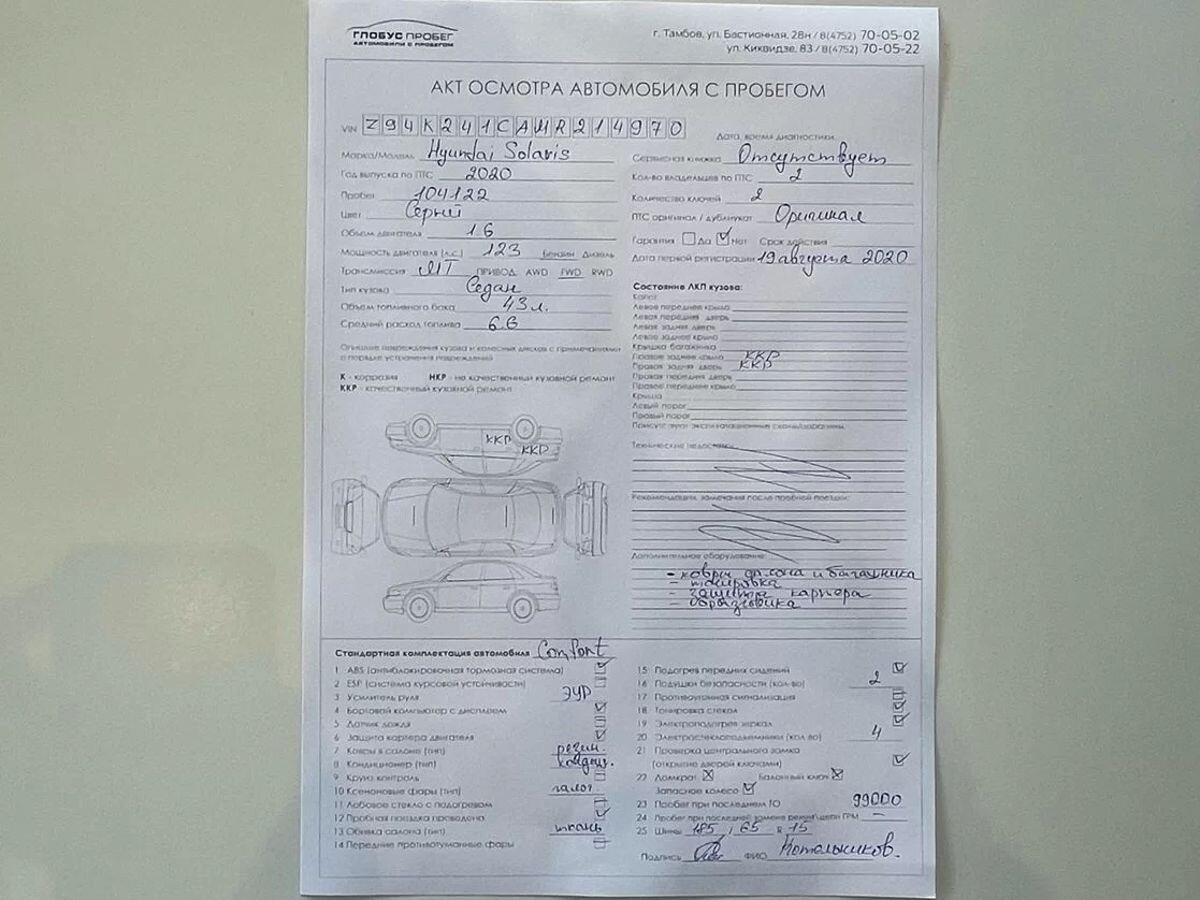 ГЛОБУС ПРОБЕГ
АВТОМОБИЛИ С ПРОБЕГОМ
г. Тамбов, ул. Бастионная, 28н / 8(4752) 70-05-02
ул. Киквидзе, 83 / 8(4752) 70-05-22
АКТ ОСМОТРА АВТОМОБИЛЯ С ПРОБЕГОМ
VIN Z94K241CAMR214970
Марка/Модель Hyundai Solaris
Год выпуска по ПТС 2020
Пробег 104122
Цвет Серый
Объем двигателя 1.6
Мощность двигателя (л.с.) 123 Бензин Дизель
Трансмиссия МТ ПРИВОД AWD FWD RWD
Тип кузова Седан
Объем топливного бака 43 л.
Средний расход топлива 6.6
Опишите повреждения кузова и колесных дисков с примечаниями
о порядке устранения повреждений
К - коррозия НКР - не качественный кузовной ремонт
ККР - качественный кузовной ремонт
ККР
ККР
Дата, время диагностики
Сервисная книжка Отсутствует
Кол-во владельцев по ПТС 2
Количество ключей 2
ПТС оригинал / дубликат Оригинал
Гарантия Да Нет Срок действия
Дата первой регистрации 19 августа 2020
Состояние ЛКП кузова:
Капот
Левое переднее крыло
Левая передняя дверь
Левая задняя дверь
Левое заднее крыло
Крышка багажника
Правое заднее крыло ККР
Правая задняя дверь ККР
Правая передняя дверь
Правое переднее крыло
Крыша
Левый порог
Правый порог
Присутствуют эксплуатационные сколы/царапины
Технические недостатки
Рекомендации, замечания после пробной поездки:
Дополнительное оборудование:
- ковры салона и багажника
- тонировка
- защита картера
- брызговики
Стандартная комплектация автомобиля Comfort
1 ABS (антиблокировочная тормозная система)
2 ESP (система курсовой устойчивости)
3 Усилитель руля ЭУР
4 Бортовой компьютер с дисплеем
5 Датчик дождя
6 Защита картера двигателя
7 Ковры в салоне (тип) резин.
8 Кондиционер (тип) кондиц.
9 Круиз контроль
10 Ксеноновые фары (тип) галог.
11 Лобовое стекло с подогревом
12 Пробная поездка проведена
13 Обивка салона (тип) ткань
14 Передние противотуманные фары
15 Подогрев передних сидений
16 Подушки безопасности (кол-во) 2
17 Противоугонная сигнализация
18 Тонировка стекол
19 Электроподогрев зеркал
20 Электростеклоподъемники (кол-во) 4
21 Проверка центрального замка
(открытие дверей ключами)
22 Домкрат Балонный ключ
Запасное колесо
23 Пробег при последнем ТО 99000
24 Пробег при последней замене ремня/цепи ГРМ —
25 Шины 185 / 65 R 15
Подпись ФИО Котельников.